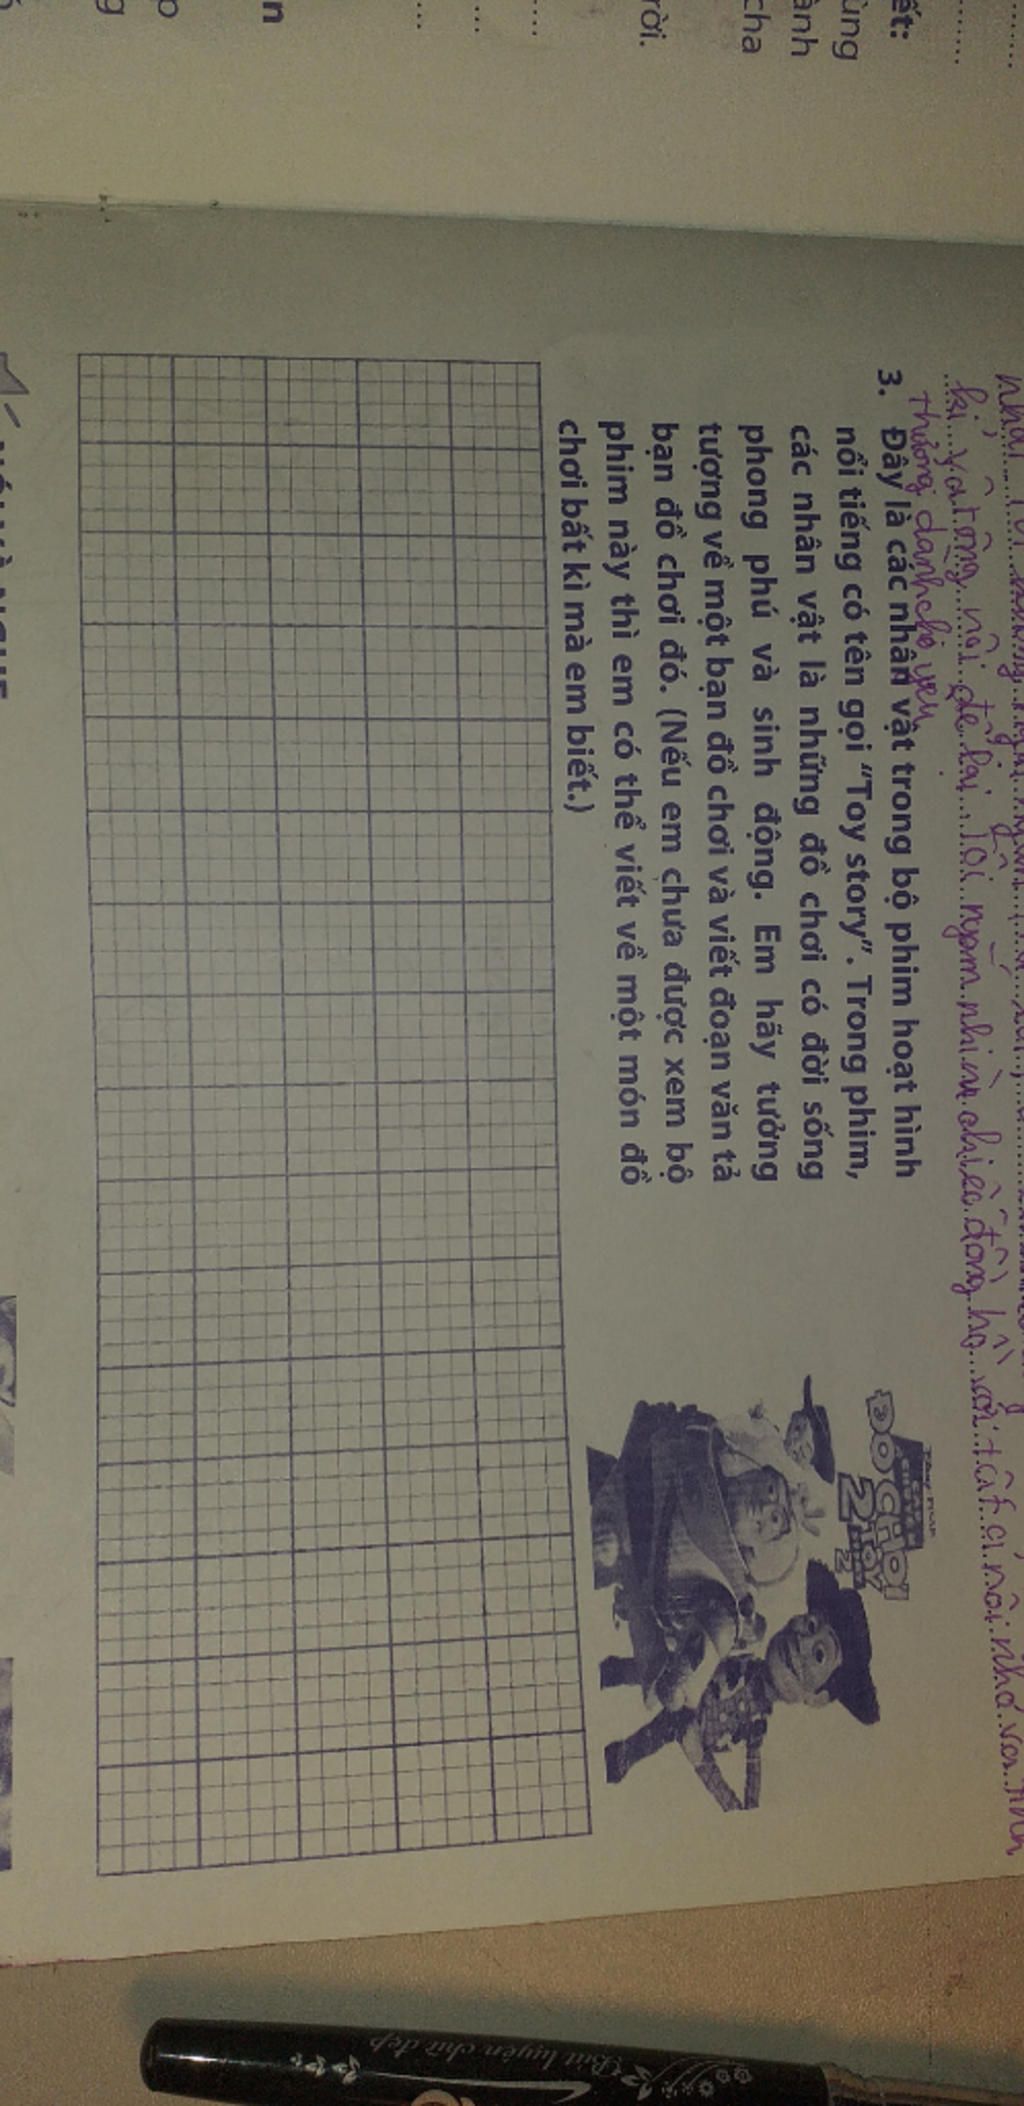 ết:
ùng
ành
cha
rời.
n
lại và ông nội để lại. Tôi ngắm nhìn chiếc đồng hồ với tất cả nỗi nhớ và tình
thương dành cho
3. Đây là các nhân vật trong bộ phim hoạt hình
nổi tiếng có tên gọi “Toy story”. Trong phim,
các nhân vật là những đồ chơi có đời sống
phong phú và sinh động. Em hãy tưởng
tượng về một bạn đồ chơi và viết đoạn văn tả
bạn đồ chơi đó. (Nếu em chưa được xem bộ
phim này thì em có thể viết về một món đồ
chơi bất kì mà em biết.)
ĐỒ CHƠI
2 TOY
2
Bút luyện chữ đẹp